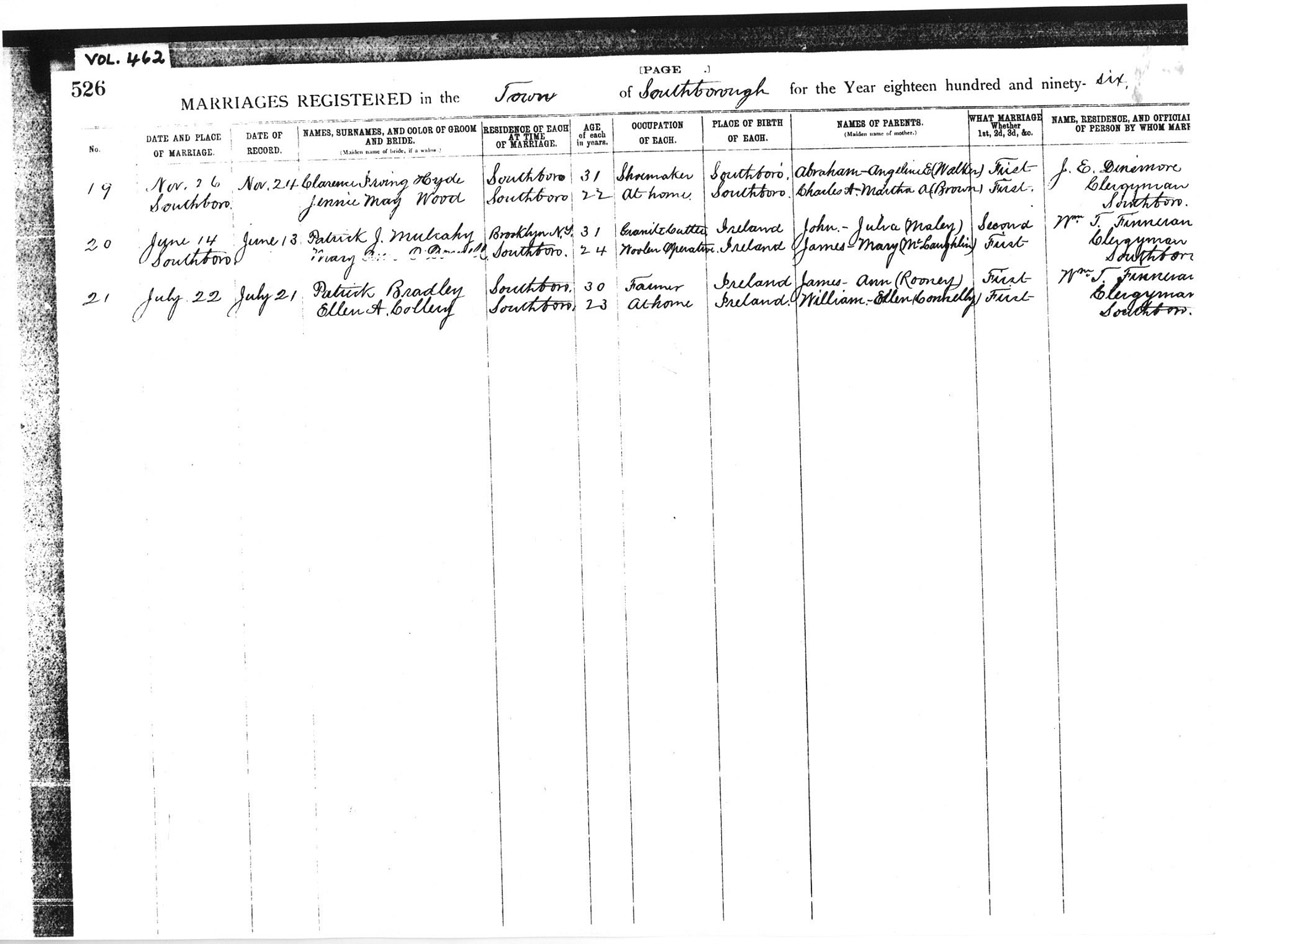 VOL. 462
526
[PAGE .]
MARRIAGES REGISTERED in the Town of Southborough for the Year eighteen hundred and ninety- six,
No.
DATE AND PLACE OF MARRIAGE.
DATE OF RECORD.
NAMES, SURNAMES, AND COLOR OF GROOM AND BRIDE.
(Maiden name of bride, if a widow.)
RESIDENCE OF EACH AT TIME OF MARRIAGE.
AGE of each in years.
OCCUPATION OF EACH.
PLACE OF BIRTH OF EACH.
NAMES OF PARENTS.
(Maiden name of mother.)
WHAT MARRIAGE Whether 1st, 2d, 3d, &c.
NAME, RESIDENCE, AND OFFICIAL OF PERSON BY WHOM MARR
19 Nov. 26 Nov. 24 Clarence Irving Hyde Southboro 31 Shoemaker Southboro. Abraham - Angeline E (Walker) First J. E. Dinsmore
Southboro. Jennie May Wood Southboro 22 At home. Southboro. Charles A - Martha A (Brown) First. Clergyman
Southboro.
20 June 14 June 13 Patrick J. Mulcahy Brooklyn N.Y. 31 Granite Cutter Ireland John. - Julia (Maley) Second Wm T. Finneran
Southboro Mary Southboro. 24 Woolen Operative. Ireland James - Mary (McLaughlin) First Clergyman
Southboro
21 July 22 July 21 Patrick Bradley Southboro. 30 Farmer Ireland James - Ann (Rooney) First Wm T. Finneran
Ellen A. Collery Southboro. 23 At home Ireland. William - Ellen (Connelly) First Clergyman
Southboro.